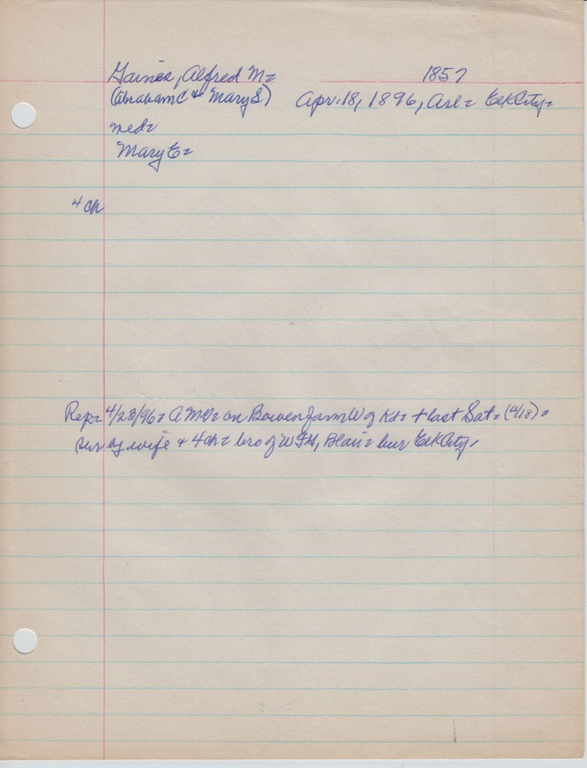 Gaines, Alfred M= 1857
(Abraham C & Mary S) Apr. 18, 1896, Arl= Elk City=
med=
Mary E=
4 ch
Rep= 4/23/96= AMG= on Bowen farm W of = + last Sat= (4/18)=
sur by wife & 4 ch= bro of W F G, Blair= bur Elk City,